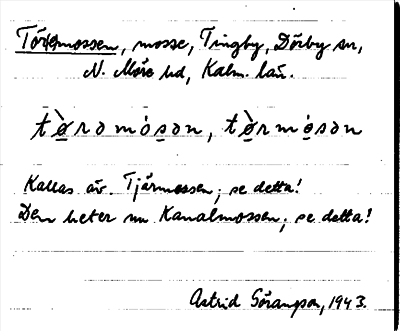 Törermossen, mosse, Tingby, Dörby sn,
N. Möre hd, Kalm. län.
tø̀rəmósən, tø̀rmósən
Kallas äv. Tjärmossen; se detta!
Den heter nu Kanalmossen; se detta!
Astrid Göransson, 1943.